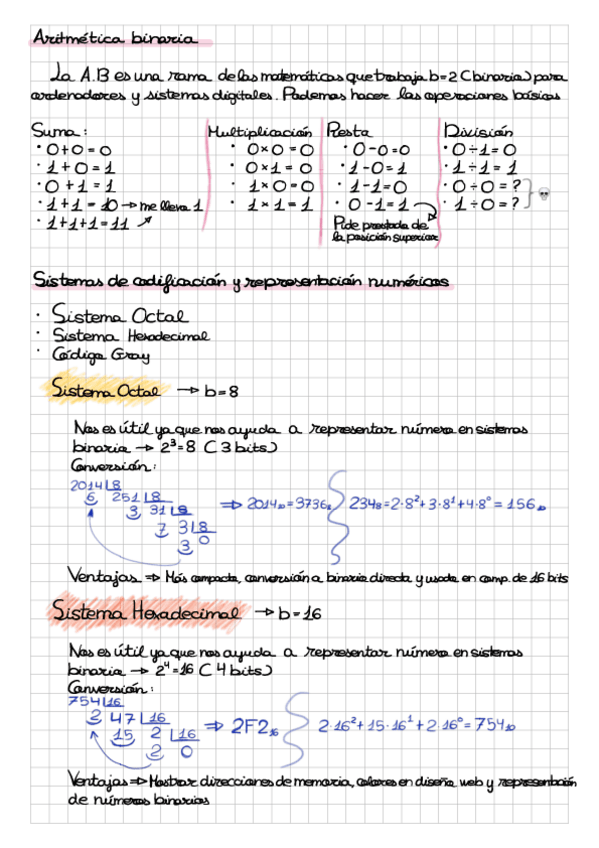 Aritmética binaria
La A.B es una rama de las matemáticas que trabaja b=2 (binaria) para
ordenadores y sistemas digitales. Podemos hacer las operaciones básicas
Suma:
· 0+0=0
· 1+0=1
· 0+1=1
· 1+1=10 → me lleva 1
· 1+1+1=11 ↗
Multiplicación
· 0×0=0
· 0×1=0
· 1×0=0
· 1×1=1
Resta
· 0-0=0
· 1-0=1
· 1-1=0
· 0-1=1
Pide prestada de
la posición superior
División
· 0÷1=0
· 1÷1=1
· 0÷0=?
· 1÷0=?
Sistemas de codificación y representación numéricas
· Sistema Octal
· Sistema Hexadecimal
· Código Gray
Sistema Octal → b=8
Nos es útil ya que nos ayuda a representar número en sistemas
binaria → 2³=8 (3 bits)
Conversión:
2014 |8
6 251 |8
3 31 |8
7 3 |8
3 0
⇒ 2014₁₀=3736₈
234₈=2·8²+3·8¹+4·8⁰=156₁₀
Ventajas ⇒ Más compacta, conversión a binaria directa y usada en comp. de 16 bits
Sistema Hexadecimal → b=16
Nos es útil ya que nos ayuda a representar número en sistemas
binaria → 2⁴=16 (4 bits)
Conversión:
754 |16
2 47 |16
15 2 |16
2 0
⇒ 2F2₁₆
2·16²+15·16¹+2·16⁰=754₁₀
Ventajas ⇒ Mostrar direcciones de memoria, colores en diseño web y representación
de números binarios